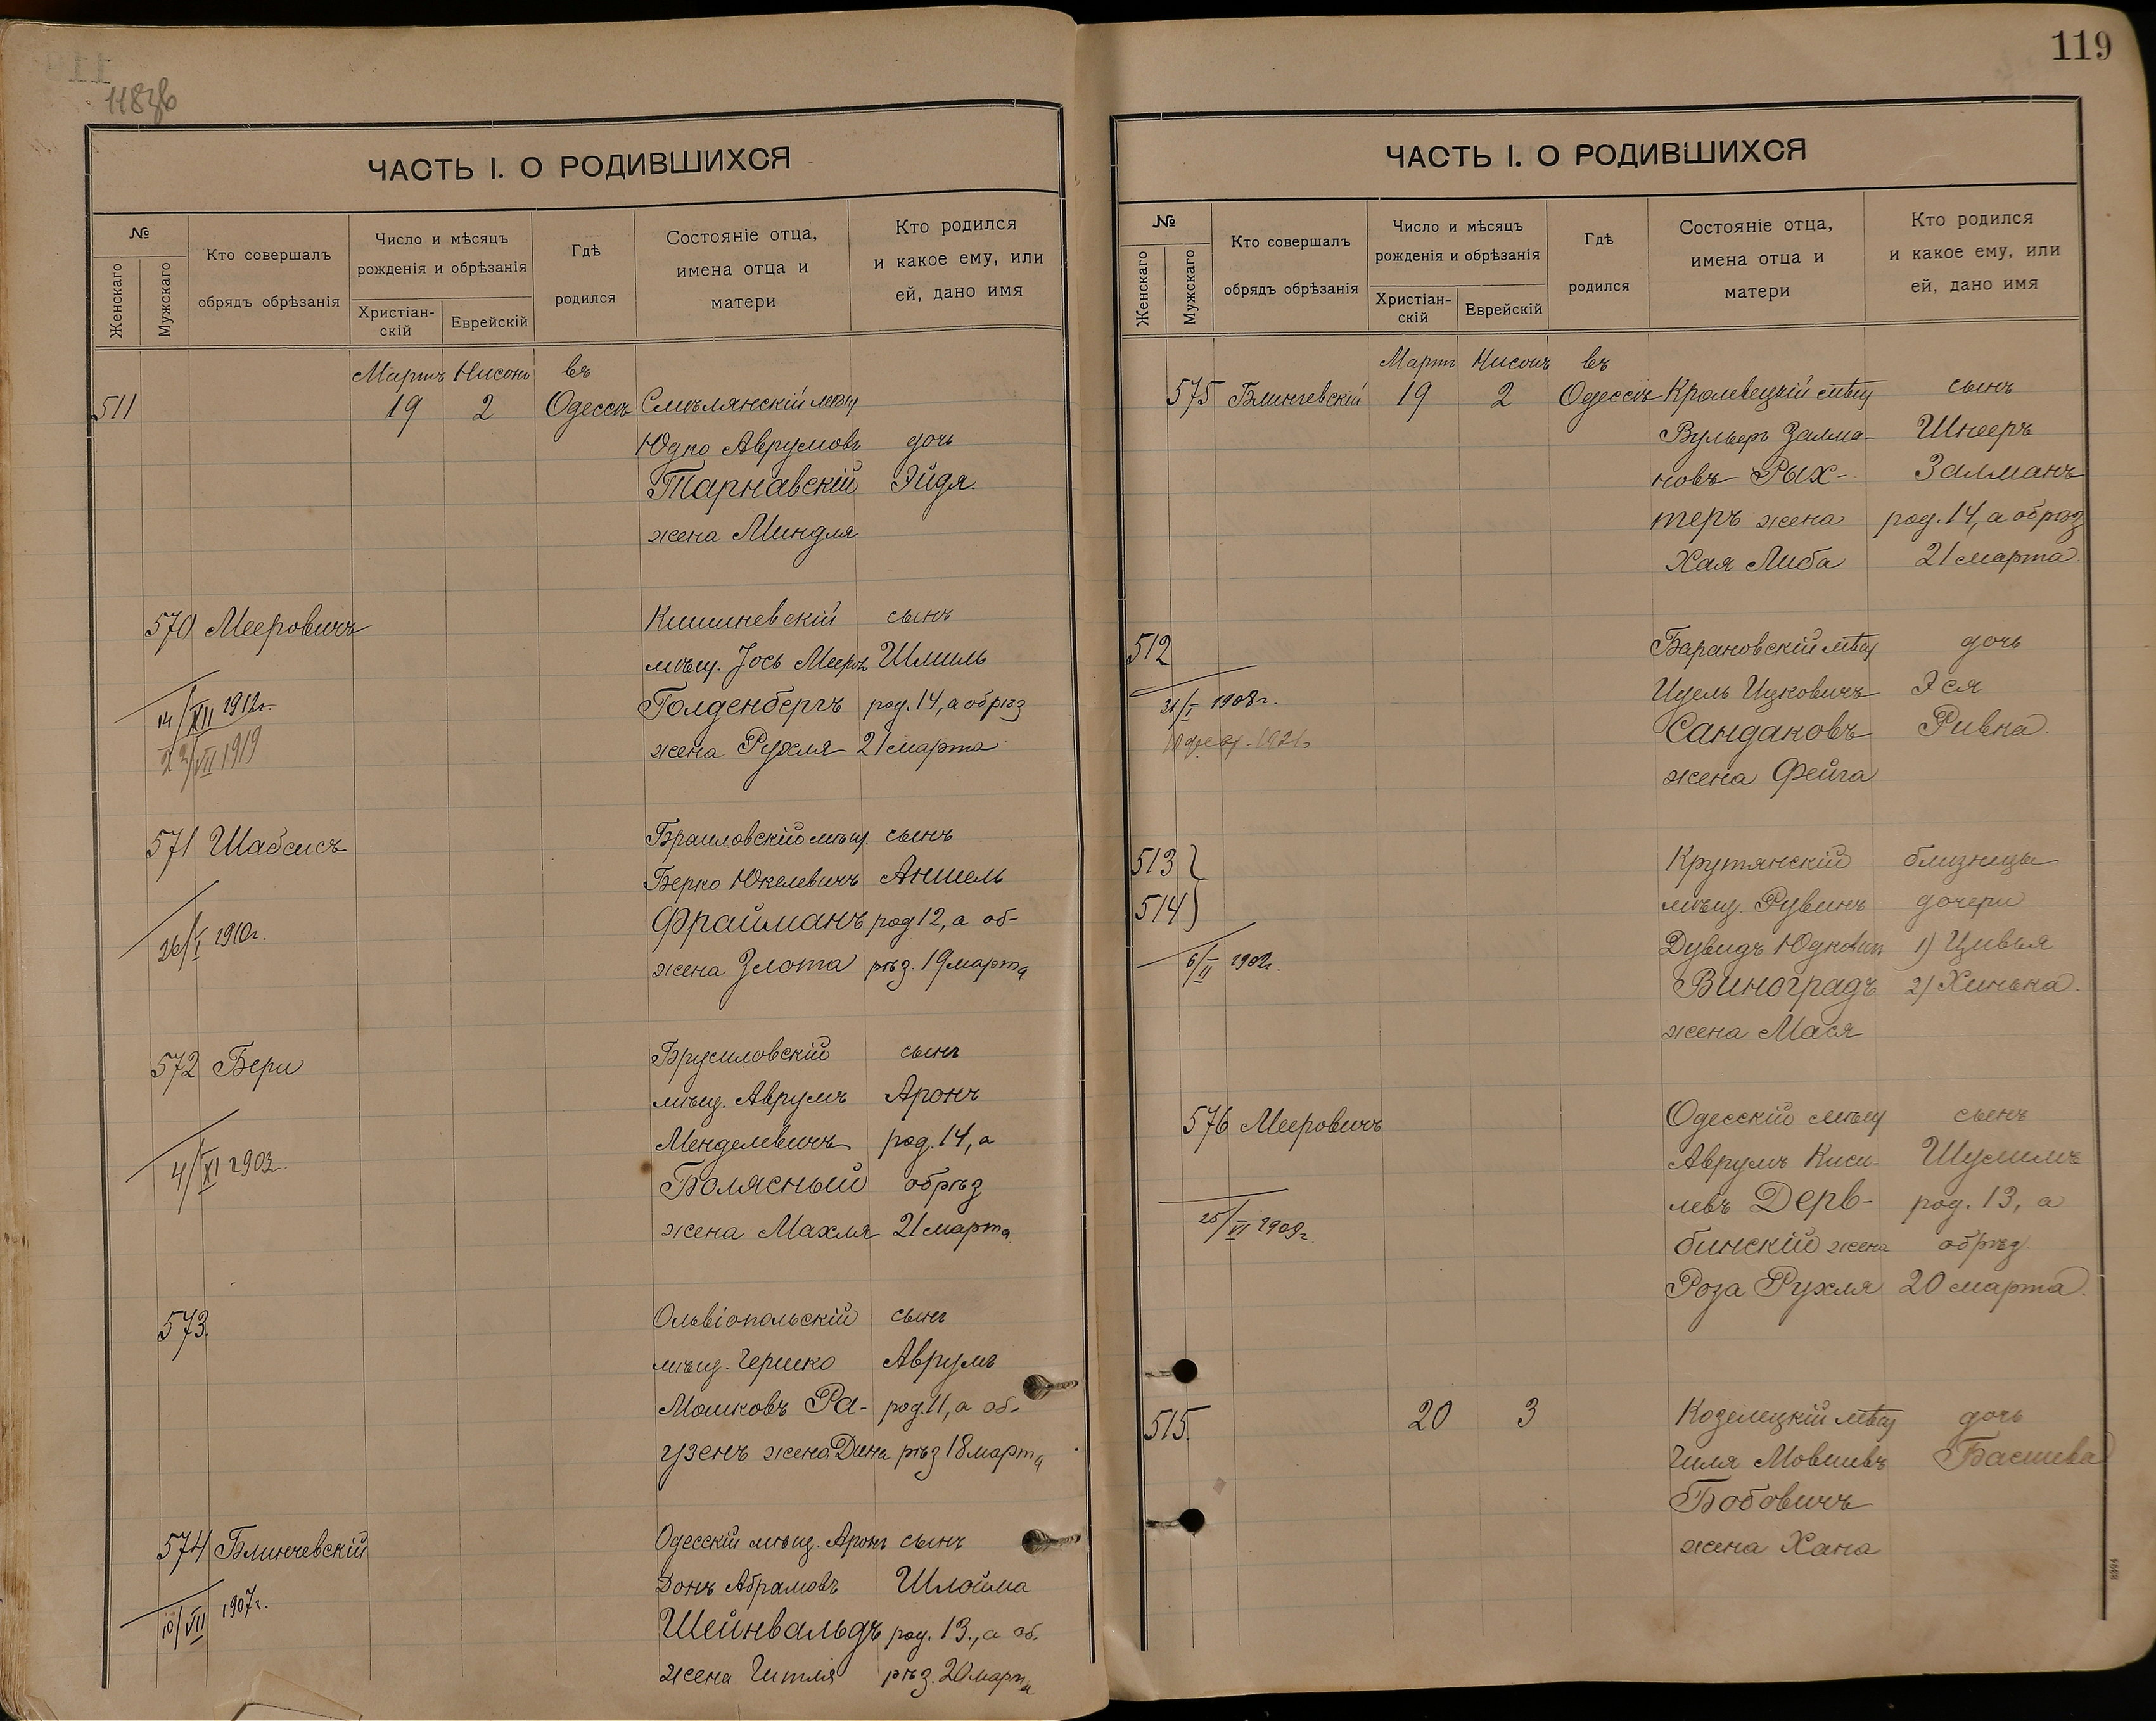 118об
ЧАСТЬ I. О РОДИВШИХСЯ
№
Женскаго
Мужскаго
Кто совершалъ
обрядъ обрѣзанія
Число и мѣсяцъ
рожденія и обрѣзанія
Христіан-
скій
Еврейскій
Гдѣ
родился
Состояніе отца,
имена отца и
матери
Кто родился
и какое ему, или
ей, дано имя
Мартъ Нисонъ въ
511 19 2 Одессѣ Смѣлянскій мѣщ
Юдко Аврумовъ дочь
Тарнавскій Эйдя.
жена Миндля
570 Мееровичъ Кишиневскій сынъ
мѣщ. Іось Мееров Шмиль
14/XII 1912г. Голденбергъ род. 14, а обрѣз
23/VII 1919 жена Рухля 21 марта
571 Шабсисъ Браиловскій мѣщ. сынъ
Берко Юкелевичъ Аншель
26/I 1910г. Фрайманъ род 12, а об-
жена Злота рѣз. 19 марта
572 Бери Брусиловскій сынъ
мѣщ. Аврумъ Аронъ
4/XI 1903г. Менделевичъ род. 14, а
Болясный обрѣз
жена Махля 21 марта
573. Ольвіопольскій сынъ
мѣщ. Гершко Аврумъ
Мошковъ Ра- род. 11, а об-
узенъ жена Дина рѣз 18 марта
574 Блинчевскій Одесскій мѣщ. Аронъ сынъ
Донъ Абрамовъ Шлойма
10/VII 1907г. Шейнвальдъ род. 13., а об.
жена Гитля рѣз. 20 марта
119
ЧАСТЬ I. О РОДИВШИХСЯ
№
Женскаго
Мужскаго
Кто совершалъ
обрядъ обрѣзанія
Число и мѣсяцъ
рожденія и обрѣзанія
Христіан-
скій
Еврейскій
Гдѣ
родился
Состояніе отца,
имена отца и
матери
Кто родился
и какое ему, или
ей, дано имя
Март Нисонъ въ
575 Блинчевскій 19 2 Одессѣ Кролевецкій мѣщ сынъ
Вульфъ Залма- Шнееръ
новъ Рых- Залманъ
теръ жена род. 14, а обрѣз
Хая Либа 21 марта.
512 Барановскій мѣщ дочь
21/I 1908г. Идель Ицковичъ Эся
Сандаковъ Ривка.
жена Фейга
513 Крутянскій близнецы
514 мѣщ. Рувинъ дочери
6/II 1902г. Дувидъ Юдкович 1) Цивья
Виноградъ 2) Хинька.
жена Мася
576 Мееровичъ Одесскій мѣщ сынъ
Аврумъ Киси- Шулимъ
25/VI 1909г. левъ Дерв- род. 13, а
бинскій жена обрѣз
Роза Рухля 20 марта.
515. 20 3 Козелецкій мѣщ дочь
Гиля Мовшевъ Басшева
Бобовичъ
жена Хана